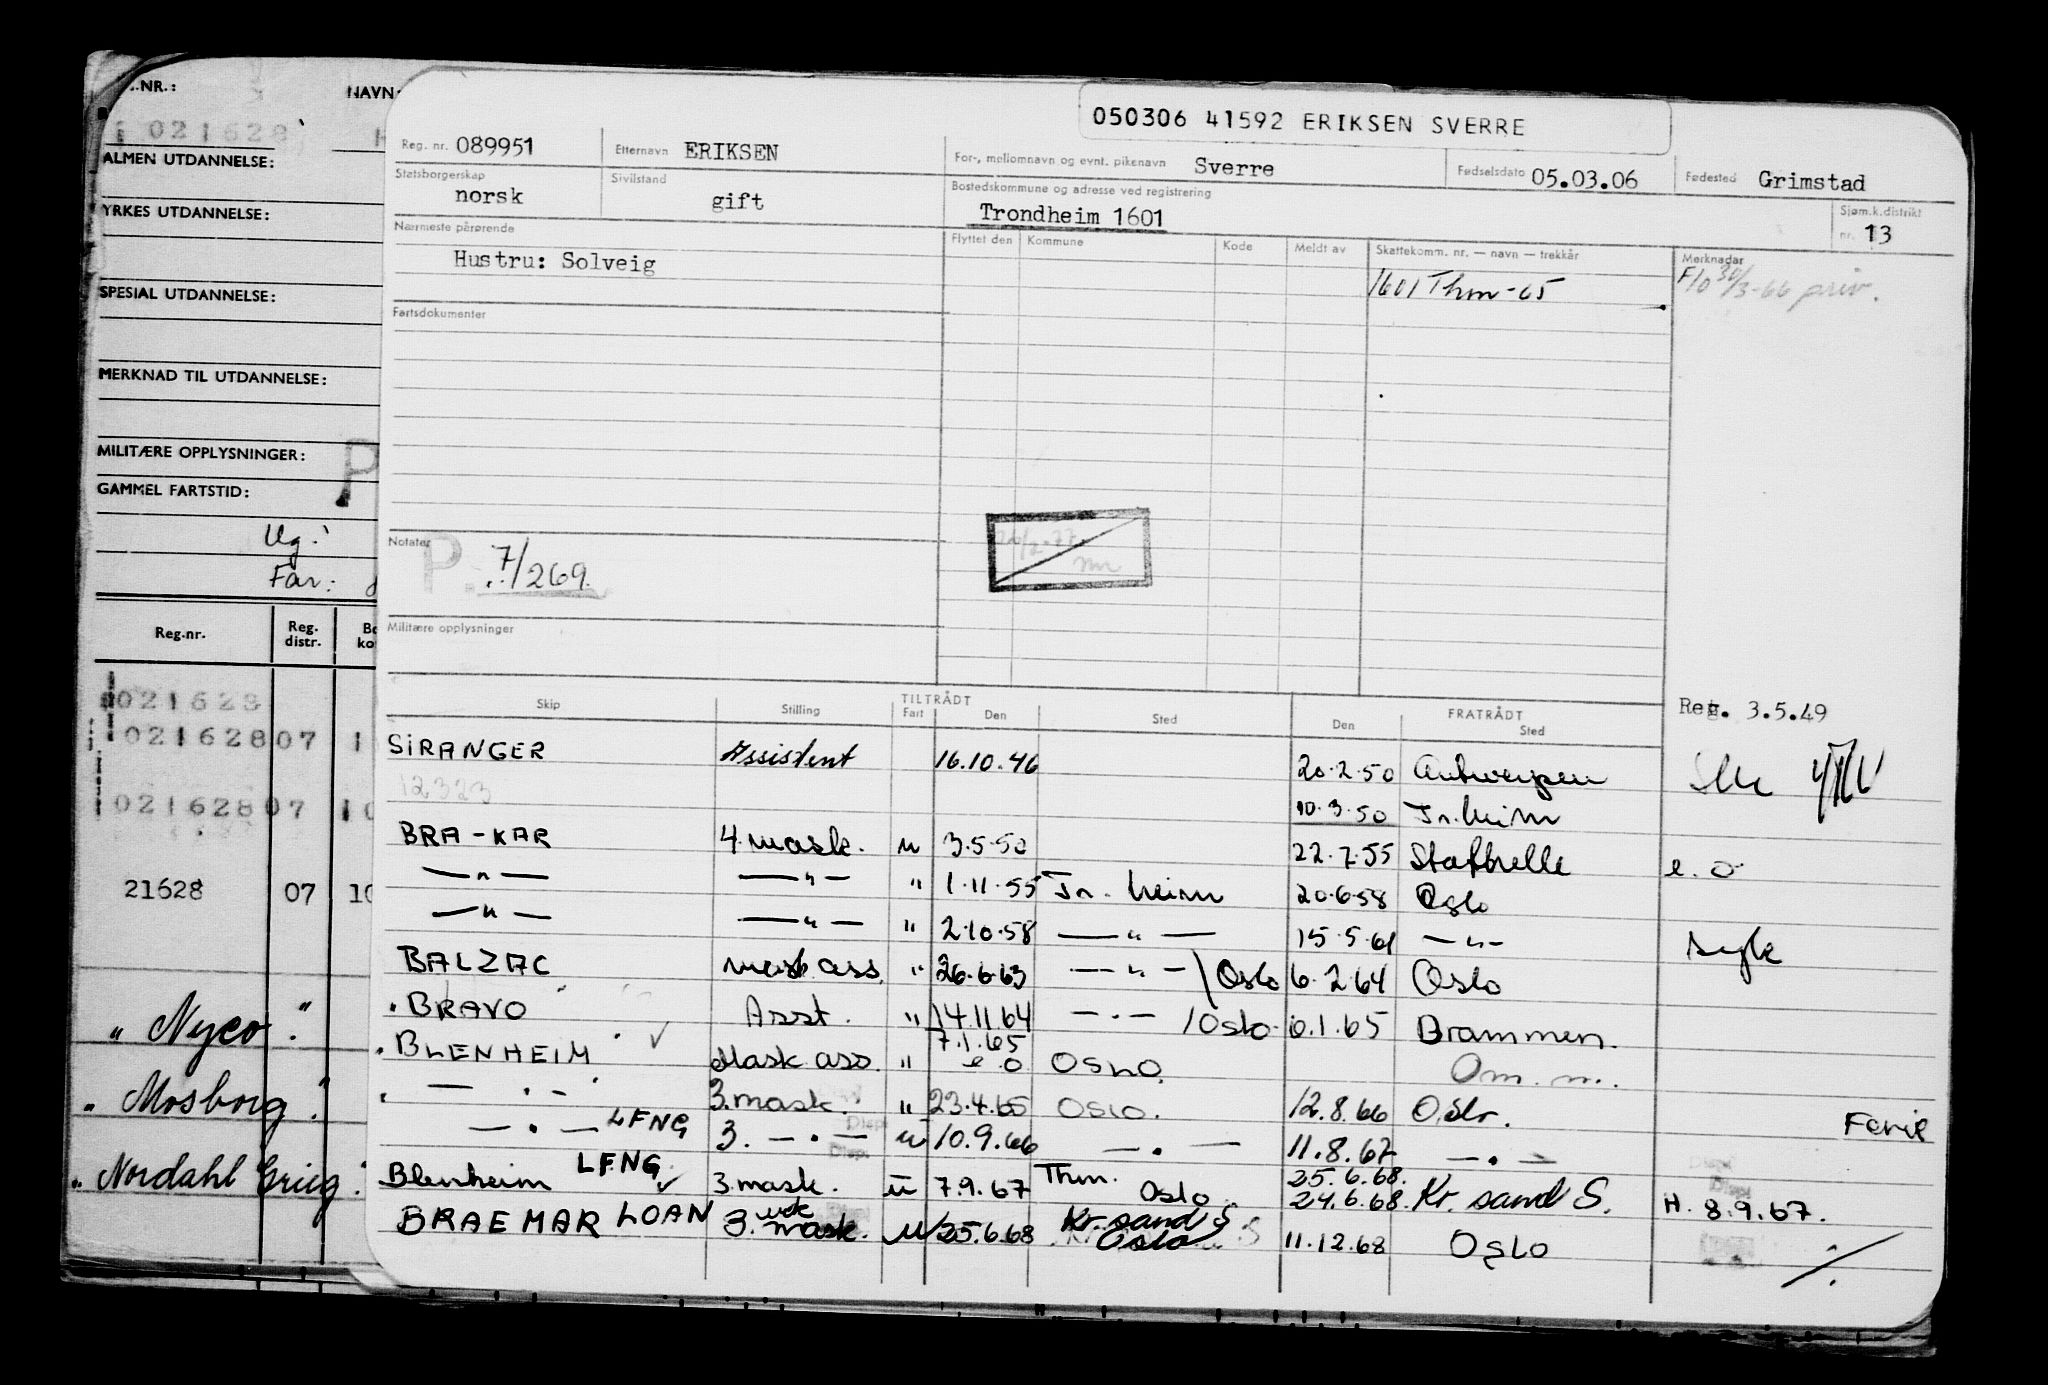 050306 41592 ERIKSEN SVERRE
Reg. nr. 089951 Etternavn ERIKSEN For-, mellomnavn og evnt. pikenavn Sverre Fødselsdato 05.03.06 Fødested Grimstad
Statsborgerskap norsk Sivilstand gift Bostedskommune og adresse ved registrering Trondheim 1601 Sjøm.k.distrikt nr. 13
Nærmeste pårørende Flyttet den Kommune Kode Meldt av Skattekomm. nr. — navn — trekkår Merknader
Hustru: Solveig 1601 Thm-65 F10 30/3-66 priv.
Fartsdokumenter
Notater P. 7/269.
Militære opplysninger
Reg. 3.5.49
Skip Stilling TILTRÅDT Fart Den Sted FRATRÅDT Den Sted
SIRANGER Assistent 16.10.46 20.2.50 Antwerpen
12323 10.3.50 Tr.heim
BRA-KAR 4.mask. u 3.5.50 22.7.55 Stathelle e.o
—"— —"— " 1.11.55 Tr.heim 20.6.58 Oslo
—"— —"— " 2.10.58 —"— 15.5.61 —"— syk
BALZAC mask ass. " 26.6.63 —"— / Oslo 6.2.64 Oslo
"BRAVO Asst. " 14.11.64 —"— / Oslo 6.1.65 Brammen.
7.1.65
"BLENHEIM Mask ass. " e.o OSLO. Om.m.
— " — 3.mask. " 23.4.65 OSLO. 12.8.66 Oslo. Ferie
— " — LFNG 3. — " — u 10.9.66 — " — 11.8.67 — " —
Blenheim LFNG 3.mask. u 7.9.67 Thm. Oslo 25.6.68. 24.6.68. Kr. sand S. H. 8.9.67.
BRAEMAR LOAN 3. mask. u 25.6.68 Kr. sand S Oslo 11.12.68 Oslo
NR.: NAVN:
021628
ALMEN UTDANNELSE:
YRKES UTDANNELSE:
SPESIAL UTDANNELSE:
MERKNAD TIL UTDANNELSE:
MILITÆRE OPPLYSNINGER: P
GAMMEL FARTSTID:
Ug.
Far:
Reg.nr. Reg. distr. Bo ko
021628
021628 07 1
021628 07 10
21628 07 10
"Nyco"
"Mosborg"
"Nordahl Grieg"